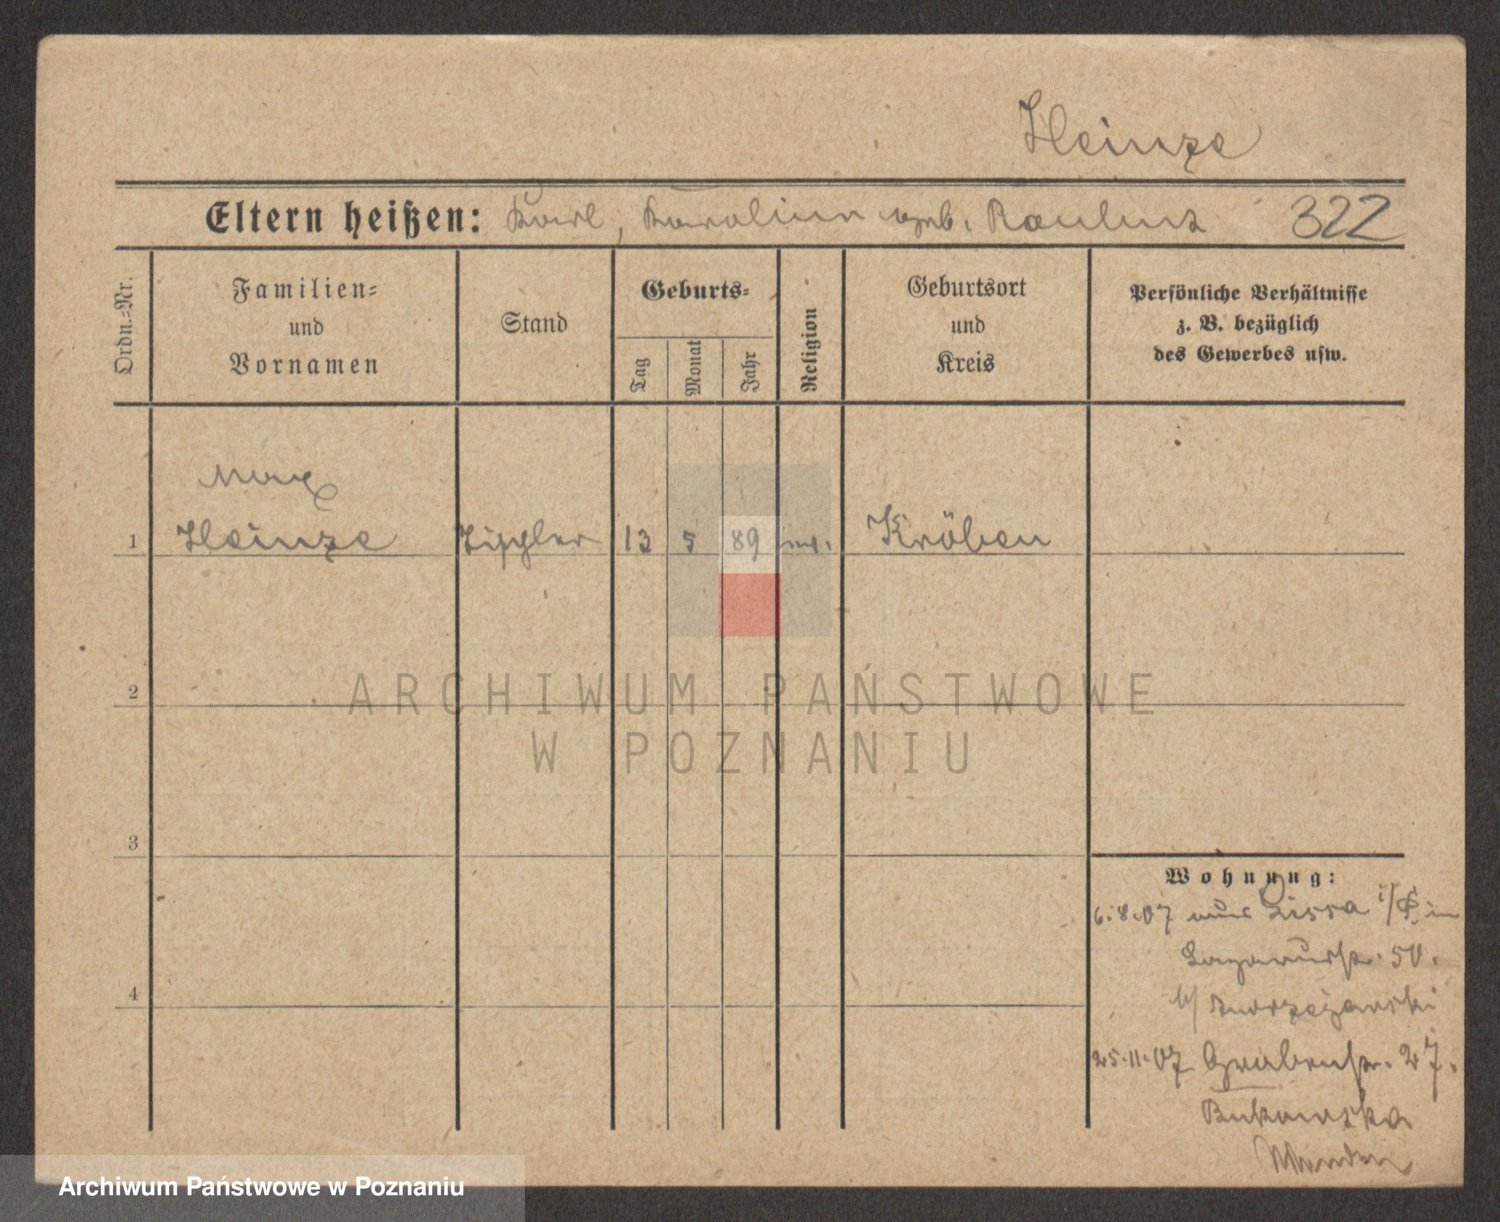 Heinze
Eltern heißen: Karl, Karolina geb. Raulusz 322
Ordn.-Nr.
Familien-
und
Vornamen
Stand
Geburts-
Tag
Monat
Jahr
Religion
Geburtsort
und
Kreis
Persönliche Verhältnisse
z. B. bezüglich
des Gewerbes usw.
Max
1 Heinze 13 5 89 Kröben
2
ARCHIWUM PAŃSTWOWE
W POZNANIU
3
Wohnung:
6.8.07 aus Lissa i/P. in
Lazarusstr. 50.
b/
4
25.11.07 Grabenstr. 27.
Bukowska
Archiwum Państwowe w Poznaniu